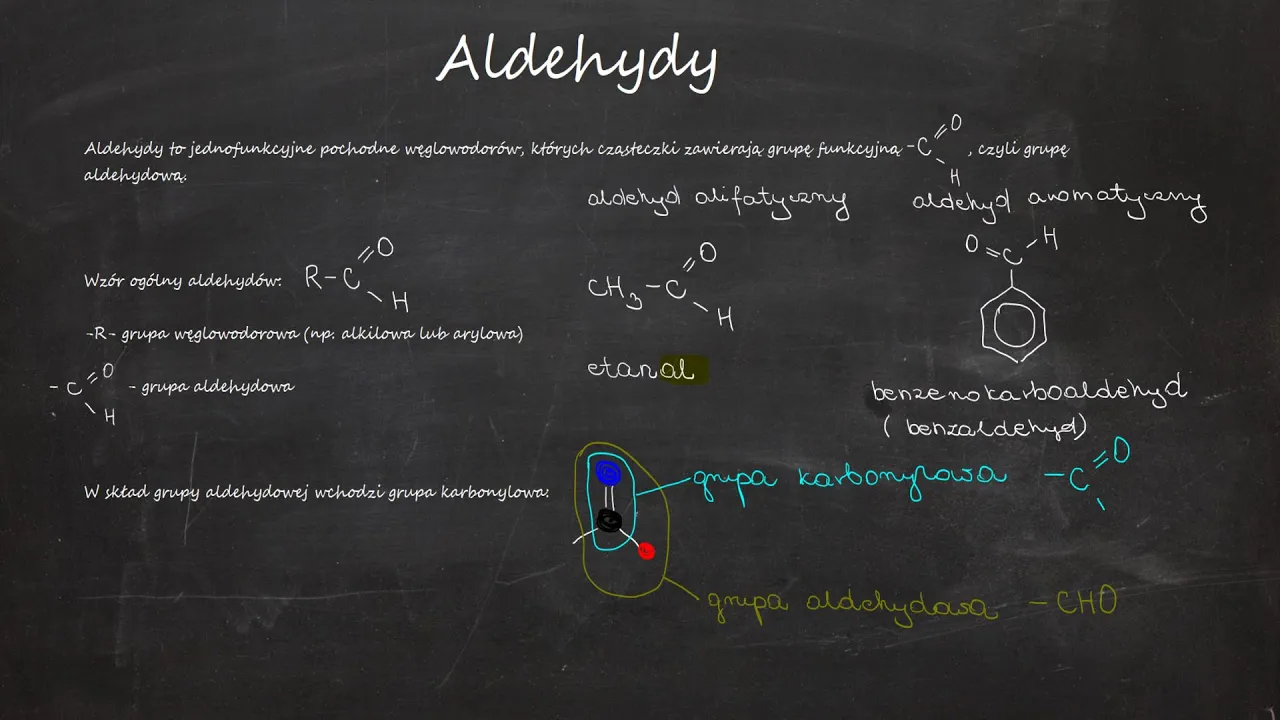 Aldehydy
Aldehydy to jednofunkcyjne pochodne węglowodorów, których cząsteczki zawierają grupę funkcyjną -C=O H, czyli grupę
aldehydową.
aldehyd alifatyczny
aldehyd aromatyczny
Wzór ogólny aldehydów: R-C=O H
CH3-C=O H
O=C-H
-R- grupa węglowodorowa (np. alkilowa lub arylowa)
etanal
-C=O H - grupa aldehydowa
benzenokarboaldehyd
(benzaldehyd)
W skład grupy aldehydowej wchodzi grupa karbonylowa:
grupa karbonylowa -C=O
grupa aldehydowa -CHO